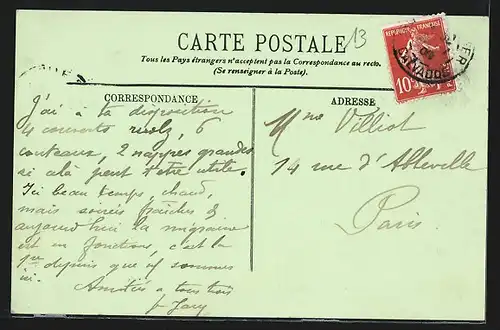 13
CARTE POSTALE
Tous les Pays étrangers n'acceptent pas la Correspondance au recto.
(Se renseigner à la Poste).
REPUBLIQUE FRANÇAISE
10
CORRESPONDANCE
ADRESSE
J'ai à ta disposition
4 couverts ruolz, 6
couteaux, 2 nappes grandes
si celà peut t'être utile.
Ici beau temps, chaud,
mais soirées fraîches &
aujourd'hui la migraine
est en fonctions, c'est la
1re depuis que ns sommes
ici.
Amitiés à tous trois
Mme Villiot
14 rue d'Abbeville
Paris